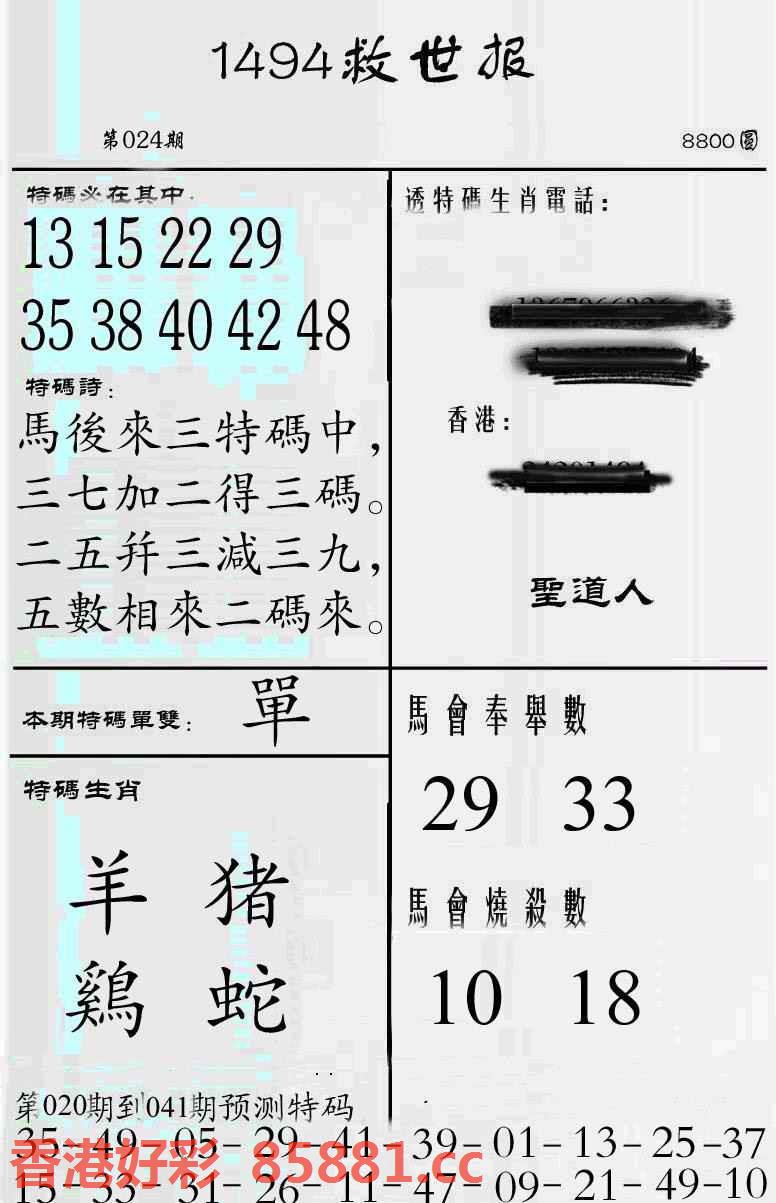 1494救世报
第024期
8800圓
特碼必在其中:
13 15 22 29
35 38 40 42 48
特碼詩:
馬後來三特碼中，
三七加二得三碼。
二五并三減三九，
五數相來二碼來。
透特碼生肖電話:
香港:
聖道人
本期特碼單雙: 單
特碼生肖
羊 猪
鷄 蛇
馬會奉舉數
29 33
馬會燒殺數
10 18
第020期到041期预测特码
35-49-05-29-41-39-01-13-25-37
香港好彩 85881.cc
15-33-31-26-11-47-09-21-49-10